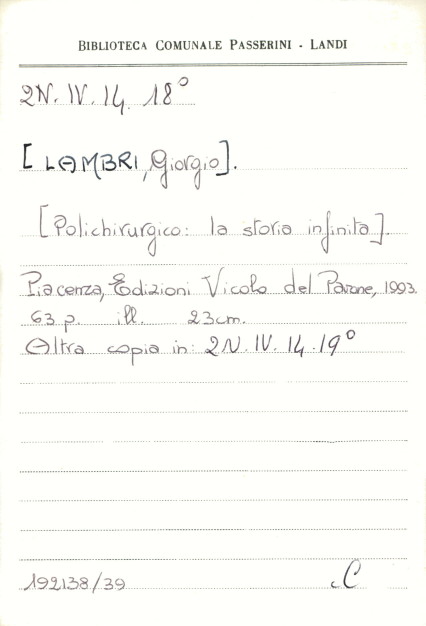 BIBLIOTECA COMUNALE PASSERINI - LANDI
2N. IV. 14. 18°
[LAMBRI, Giorgio].
[Polichirurgico: la storia infinita].
Piacenza, Edizioni Vicolo del Pavone, 1993.
63 p. ill. 23cm.
Altra copia in: 2N. IV. 14. 19°
192138/39
C